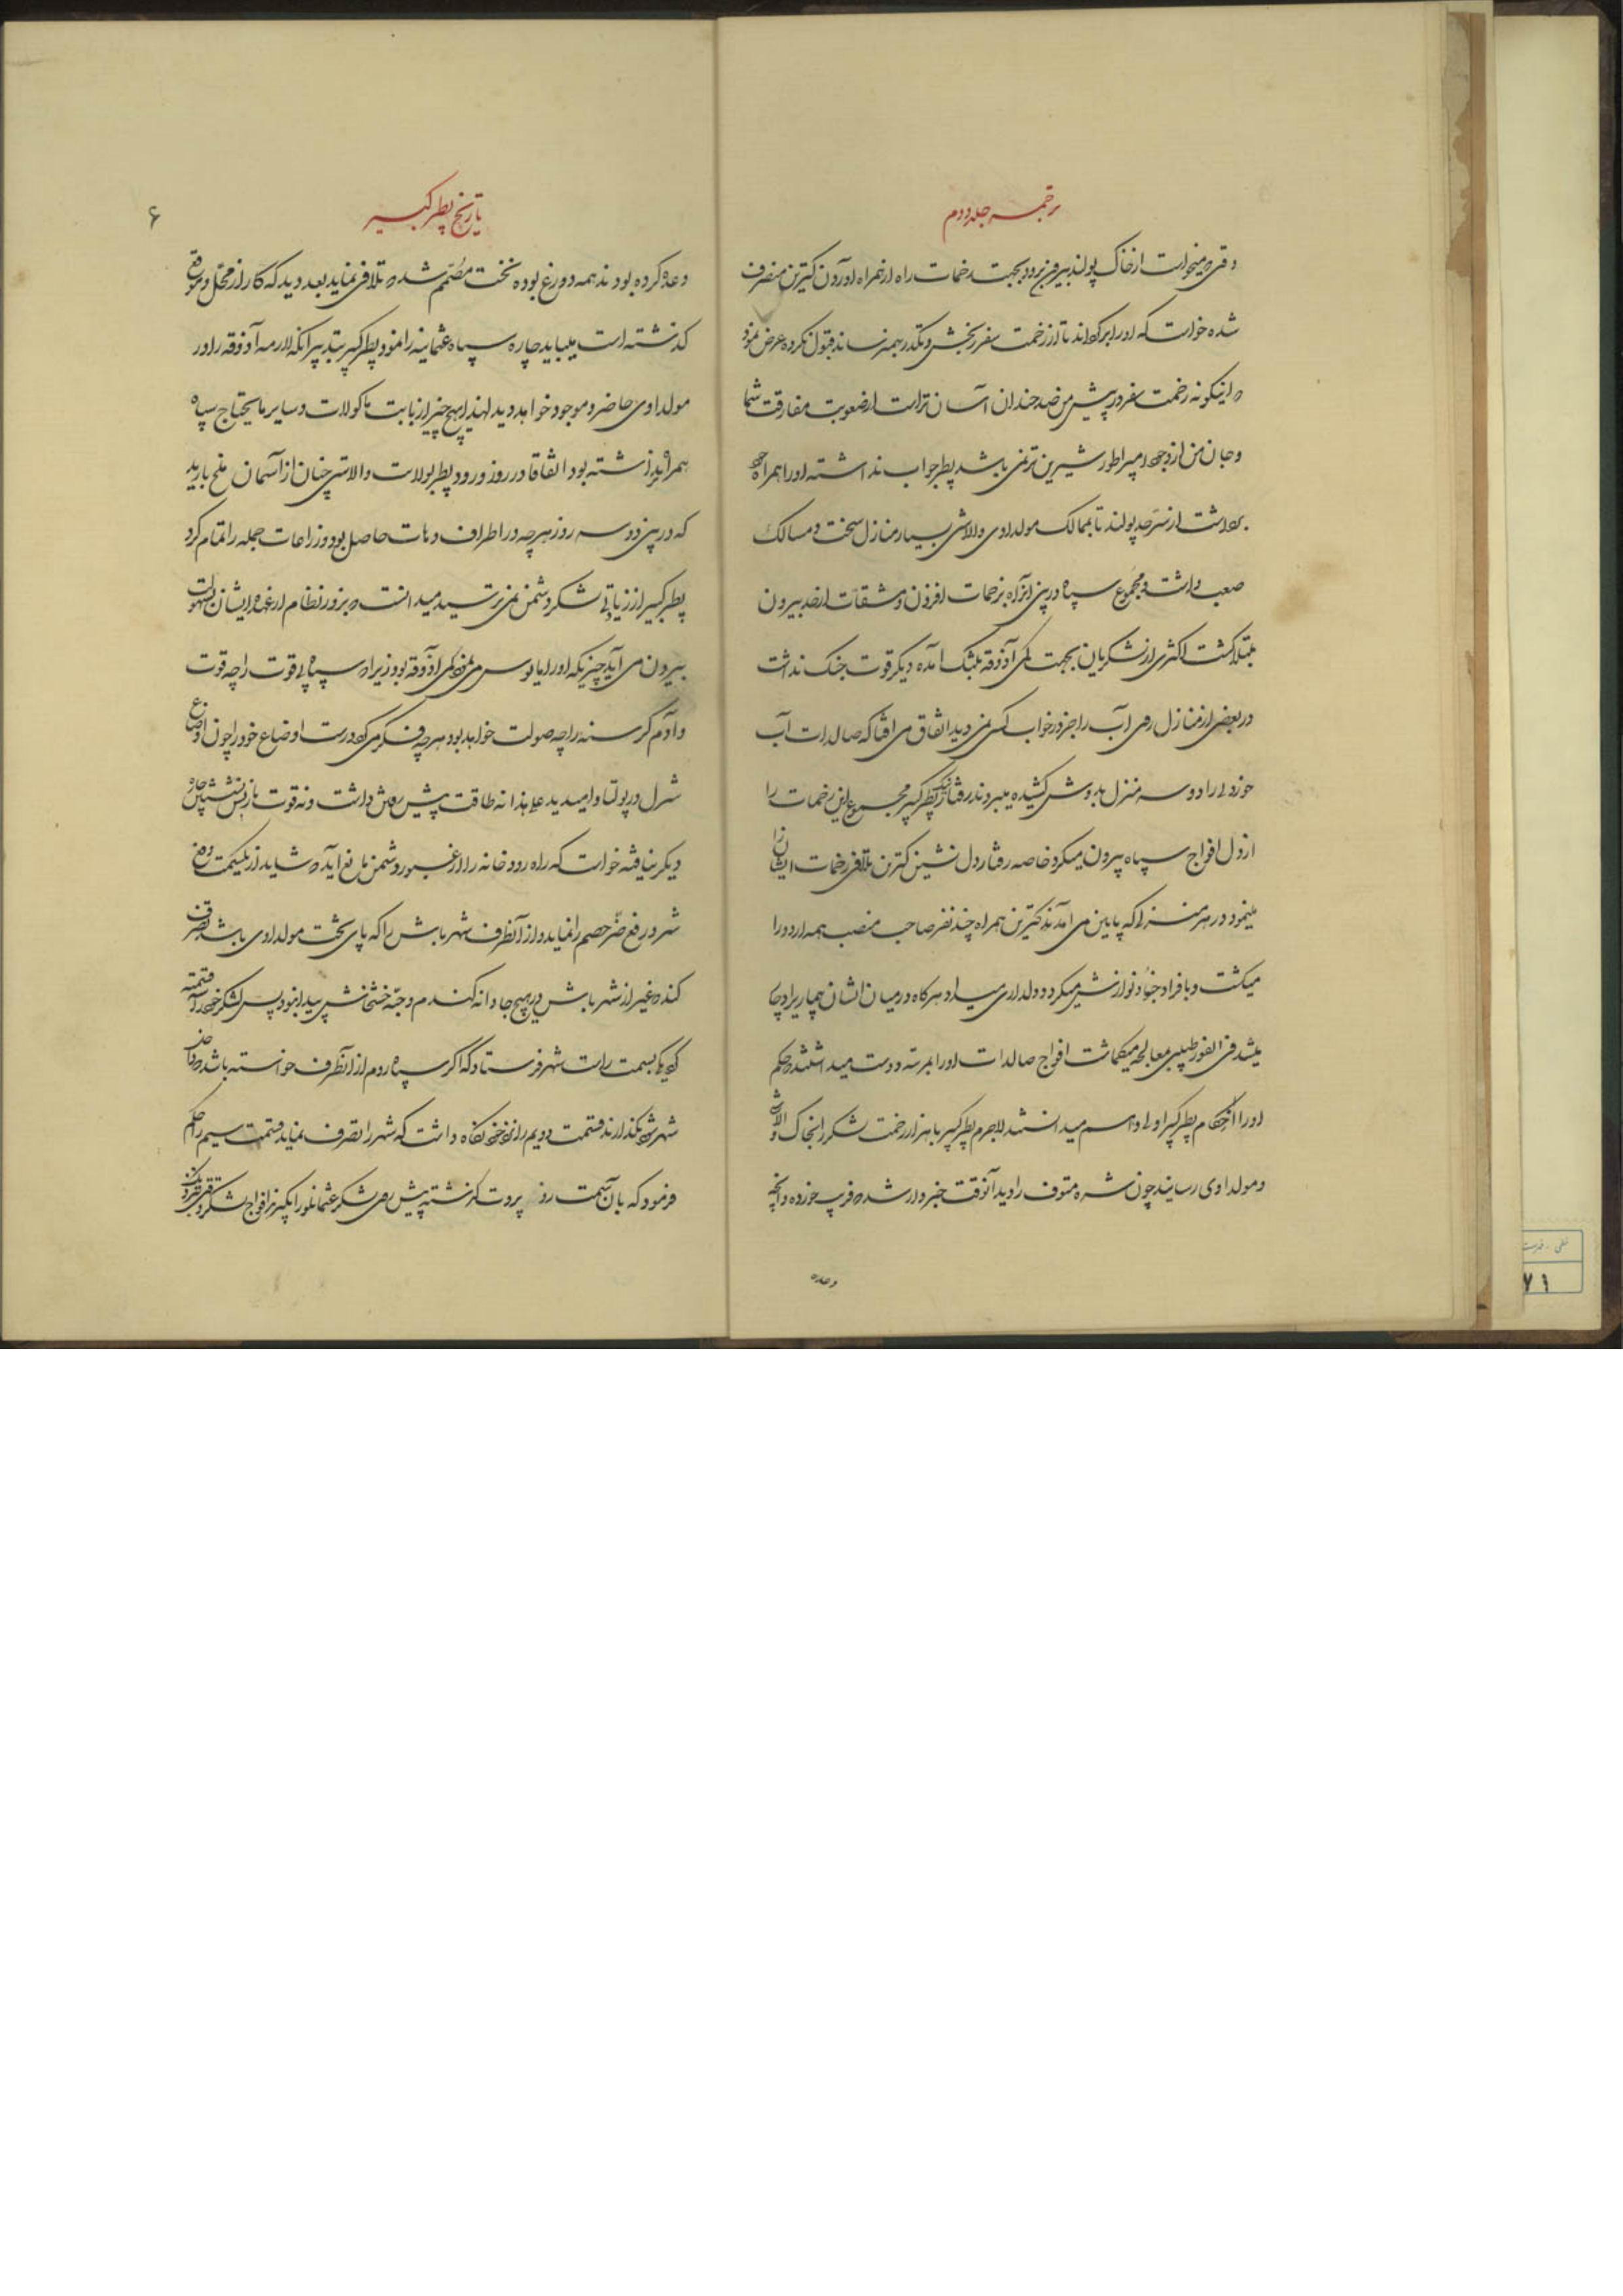 ترجمه جلد دوم
وقتی که میخواست از خاک پولند بیرون برود بجهت زحمات راه از همراه آوردن کترین منصرف
شده خواست که او را برگرداند تا از زحمت سفر رنجش و تکدر بهم نرساند قبول نکرده عرض نمود
که اینگونه زحمت سفر در پیش من صد چندان آسان تر است از صعوبت مفارقت شما
و جان من از وجود امپراطور شیرین تر نمی باشد پطر جواب نداشته او را همراه خود
برداشت از سرحد پولند تا بممالک مولداوی والاشی بسیار منازل سخت و مسالک
صعب داشت و مجموع سپاه در بین این راه بزحمات افزون و مشقات از حد بیرون
مبتلا گشت اکثری از لشکریان بجهت کمی آذوقه بتنگ آمده دیگر قوت جنگ نداشت
در بعضی از منازل روی آب را جز در خواب کسی نمی دید اتفاق می افتاد که صالدات آب
خوردنی را دو سه منزل بدوش کشیده میبردند رفتار نیک پطر کبیر مجموع این زحمات را
از دل افواج سپاه بیرون میکرد خاصه رفتار دل نشین کترین تلافی زحمات ایشان را
مینمود در هر منزلی که پایین می آمدند کترین همراه چند نفر صاحب منصب همه اردو را
میگشت و با فراد جنود نوازش میکرد و دلداری میداد هرگاه در میان ایشان بیماری را دچار
میشد فی الفور طبیبی بمعالجه میگماشت افواج صالدات او را بمرتبه دوست میداشتند که حکم
او را احکام پطر کبیر اولی و اسم میدانستند لاجرم پطر کبیر با هزار زحمت لشکر را بخاک والاشی
و مولداوی رسانید چون شهره متوف را دید آنوقت خبردار شد که فریب خورده و آنچه
وعده
تاریخ پطر کبیر
۶
وعده کرده بودند همه دروغ بوده نخست مصمم شد که تلافی نماید بعد دید که کار از محل و موقع
گذشته است میباید چاره سپاه عثمانیه را نمود پطر کبیر بتدبیر آنکه لازمه آذوقه را در
مولداوی حاضر و موجود خواهد دید لهذا هیچ چیز از بابت ماکولات و سایر مایحتاج سپاه
همراه بر نداشته بود اتفاقا در روز ورود پطر بولایت والاشی چنان از آسمان ملخ بارید
که در بین دو سه روز هر چه در اطراف دهات حاصل بود و زراعات جمله را تمام کرد
پطر کبیر از زیادتی لشکر دشمن نمی ترسید میدانست که بزور نظام از عهده ایشان بسهولت
بیرون می آید چیزیکه او را مایوس می نمود کمی آذوقه بود زیرا که سپاه بی قوت را چه قوت
و آدم گرسنه را چه صولت خواهد بود هر چه فکر می کرد درست اوضاع خود را چون اوضاع
شرل در پولتاوا میدید علی هذا نه طاقت پیش رفتن داشت و نه قوت باز پس نشستن چاره
دیگر نیافته خواست که راه رودخانه را از عبور دشمن مانع آید که شاید از یکسمت دفع
شر و رفع ضر خصم را نماید و از آنطرف شهر یاش را که پای تخت مولداوی باشد بتصرف
کند که غیر از شهر یاش در هیچ جا دانه گندم و حبه خشخاش پیدا نبود پس لشکر خود را سه قسمت
گروهی بسمت راست شهر فرستاد که اگر سپاه روم از آنطرف خواسته باشد که داخل
شهر شود نگذارند قسمت دویم را نزد خود نگاه داشت که شهر را تصرف نماید قسمت سیم را حکم
فرمود که بآن سمت رود پروت گذشته پیش روی لشکر عثمانلو را بگیرند افواج لشکر وقتی